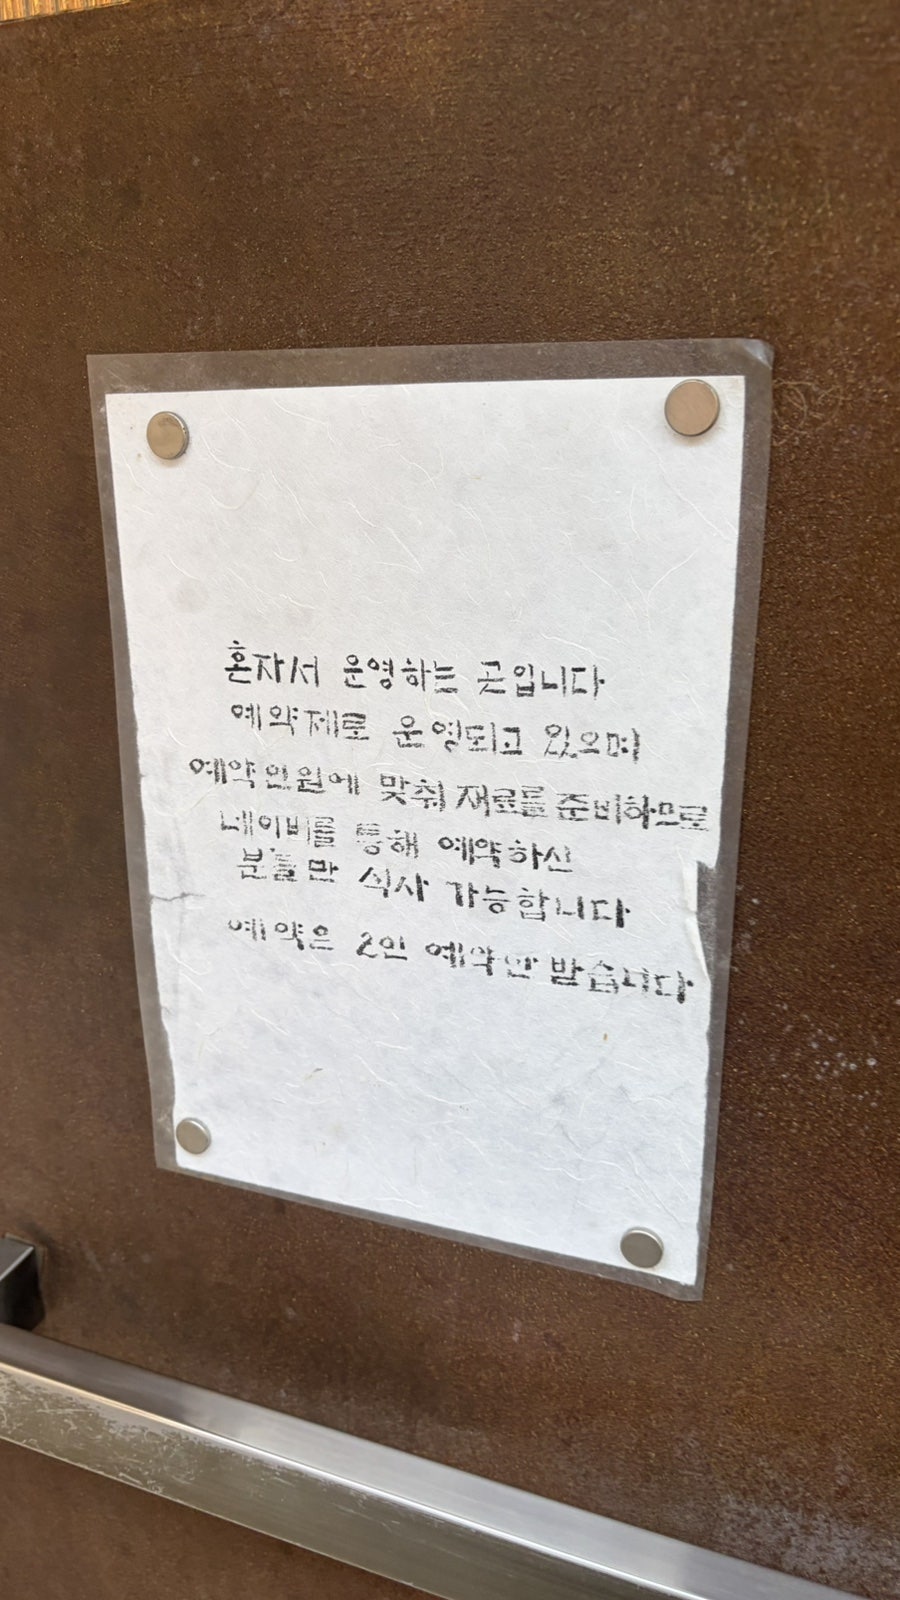 혼자서 운영하는 곳입니다
예약제로 운영되고 있으며
예약인원에 맞춰 재료를 준비하므로
네이버를 통해 예약하신
분들만 식사 가능합니다
예약은 2인 예약만 받습니다